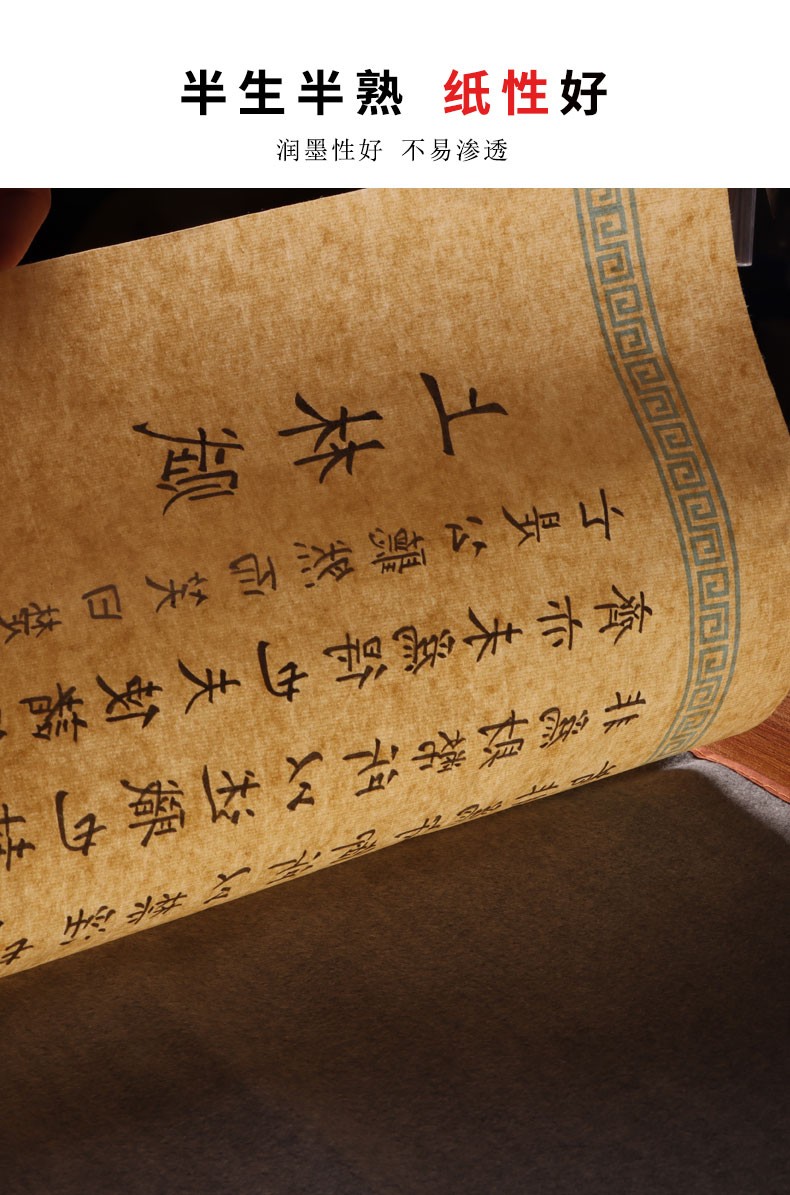 半生半熟 纸性好
润墨性好 不易渗透
上林賦
亡是公聽然而笑曰楚
齊亦未為得也夫使諸
非為財幣所以述職也封